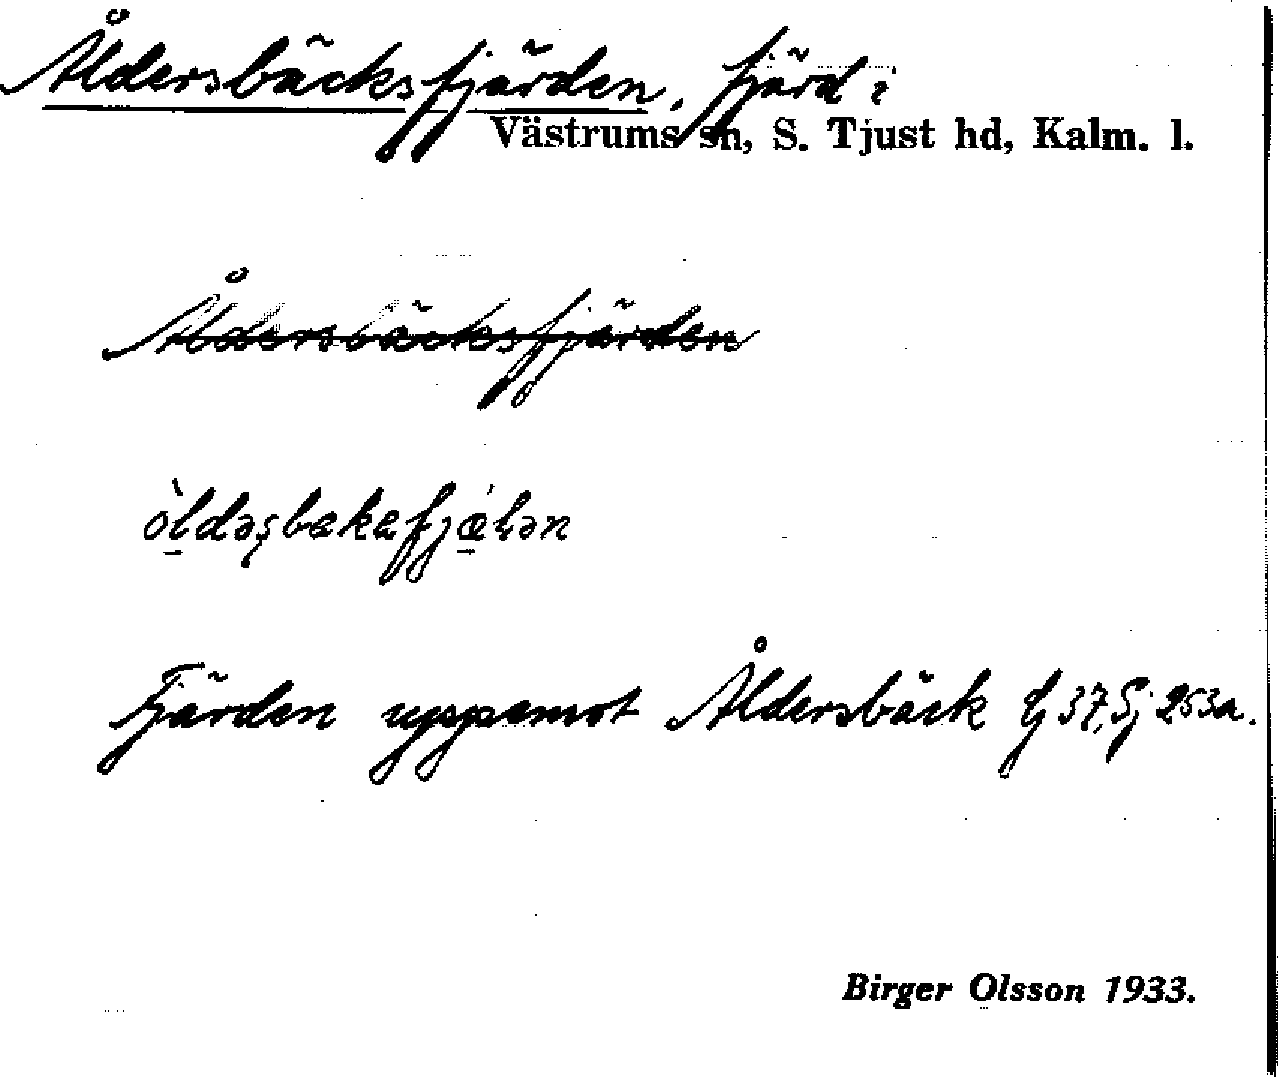 Åldersbäcksfjärden, fjärd i
Västrums sn, S. Tjust hd, Kalm. l.
Åldersbäcksfjärden
Fjärden uppemot Åldersbäck 37, 253a.
Birger Olsson 1933.